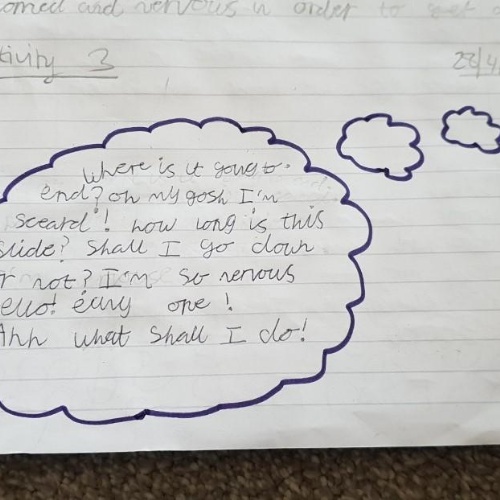 and nervous in order to get
tivity 3
where is it going to
end? oh my gosh I'm
sceard! how long is this
slide? Shall I go down
r not? I'm so nervous
ello! evry one!
Ahh what shall I do!